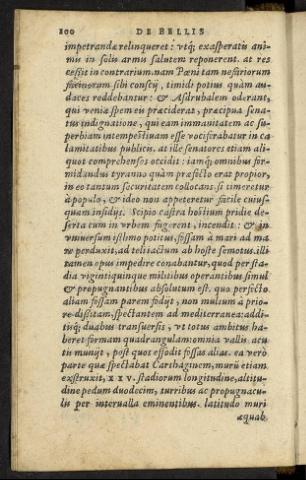 200 DE BELLIS
impetrandæ relinqueret: vtq; exasperatis ani-
mis in solis armis salutem reponerent. at res
cessit in contrarium. nam Pœni tam nefariorum
facinorum sibi conscij, timidi potius quàm au-
daces reddebantur: & Asdrubalem oderant,
qui veniæ spem eis præciderat, præcipua sena-
tus indignatione, qui eam immanitatem ac su-
perbiam intempestiuam esse vociferabatur in ca
lamitatibus publicis. at ille senatores etiam ali-
quot comprehensos occidit: iamq; omnibus for-
midandus tyranno quàm præfecto erat propior,
in eo tantum securitatem collocans, si timeretur
à populo, & ideo non appeteretur facile cuius-
quam insidijs. Scipio castra hostium pridie de-
serta cum in vrbem fugerent, incendit: & in
vniuersum isthmo potitus, fossam à mari ad ma
re perduxit, ad teli iactum ab hoste semotus. illi
tamen opus impedire conabantur, quod per sta-
dia vigintiquinque militibus operantibus simul
& propugnantibus absolutum est. quo perfecto
aliam fossam parem fodit, non multum à prio-
re dissitam, spectantem ad mediterranea: addi-
tisq; duabus transuersis, vt totus ambitus ha-
beret formam quadrangulam: omnia vallis acu
tis muniit, post quos effodit fossas alias. ea verò
parte quæ spectabat Carthaginem, murū etiam
exstruxit, XXV. stadiorum longitudine, altitu-
dine pedum duodecim, turribus ac propugnacu-
lis per interualla eminentibus. latitudo muri
æquab